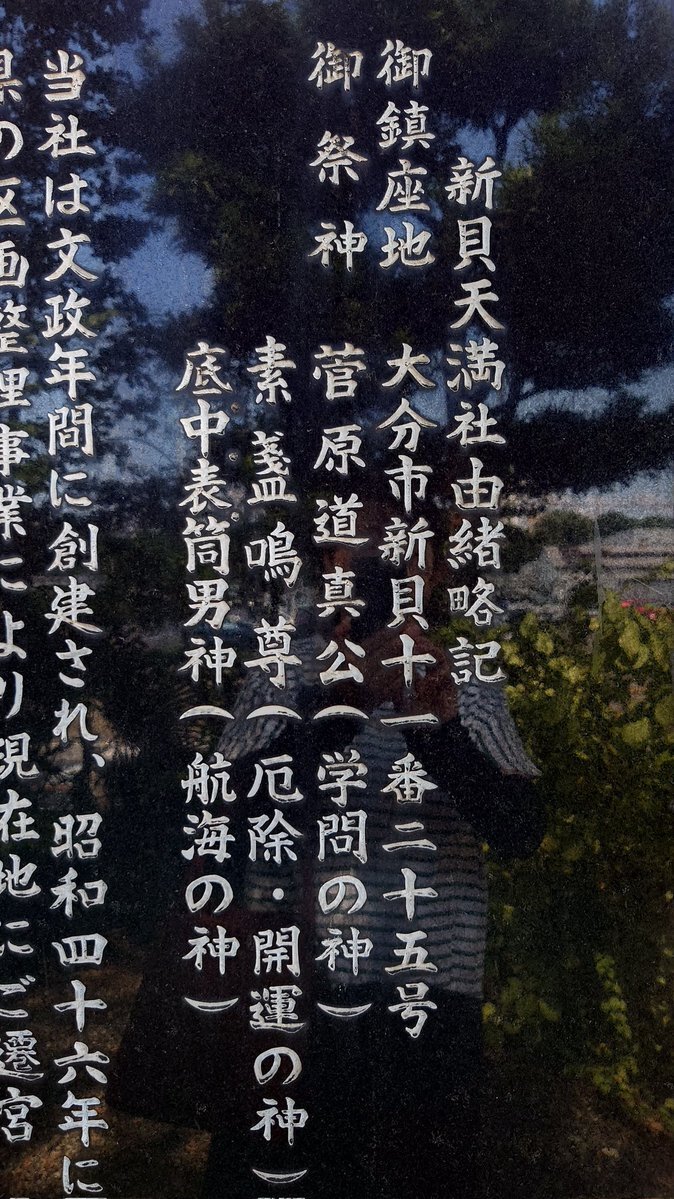 新貝天満社由緒略記
御鎮座地 大分市新貝十一番二十五号
御祭神 菅原道真公(学問の神)
素盞嗚尊(厄除・開運の神)
底中表筒男神(航海の神)
当社は文政年間に創建され、昭和四十六年に
県の区画整理事業により現在地にご遷宮